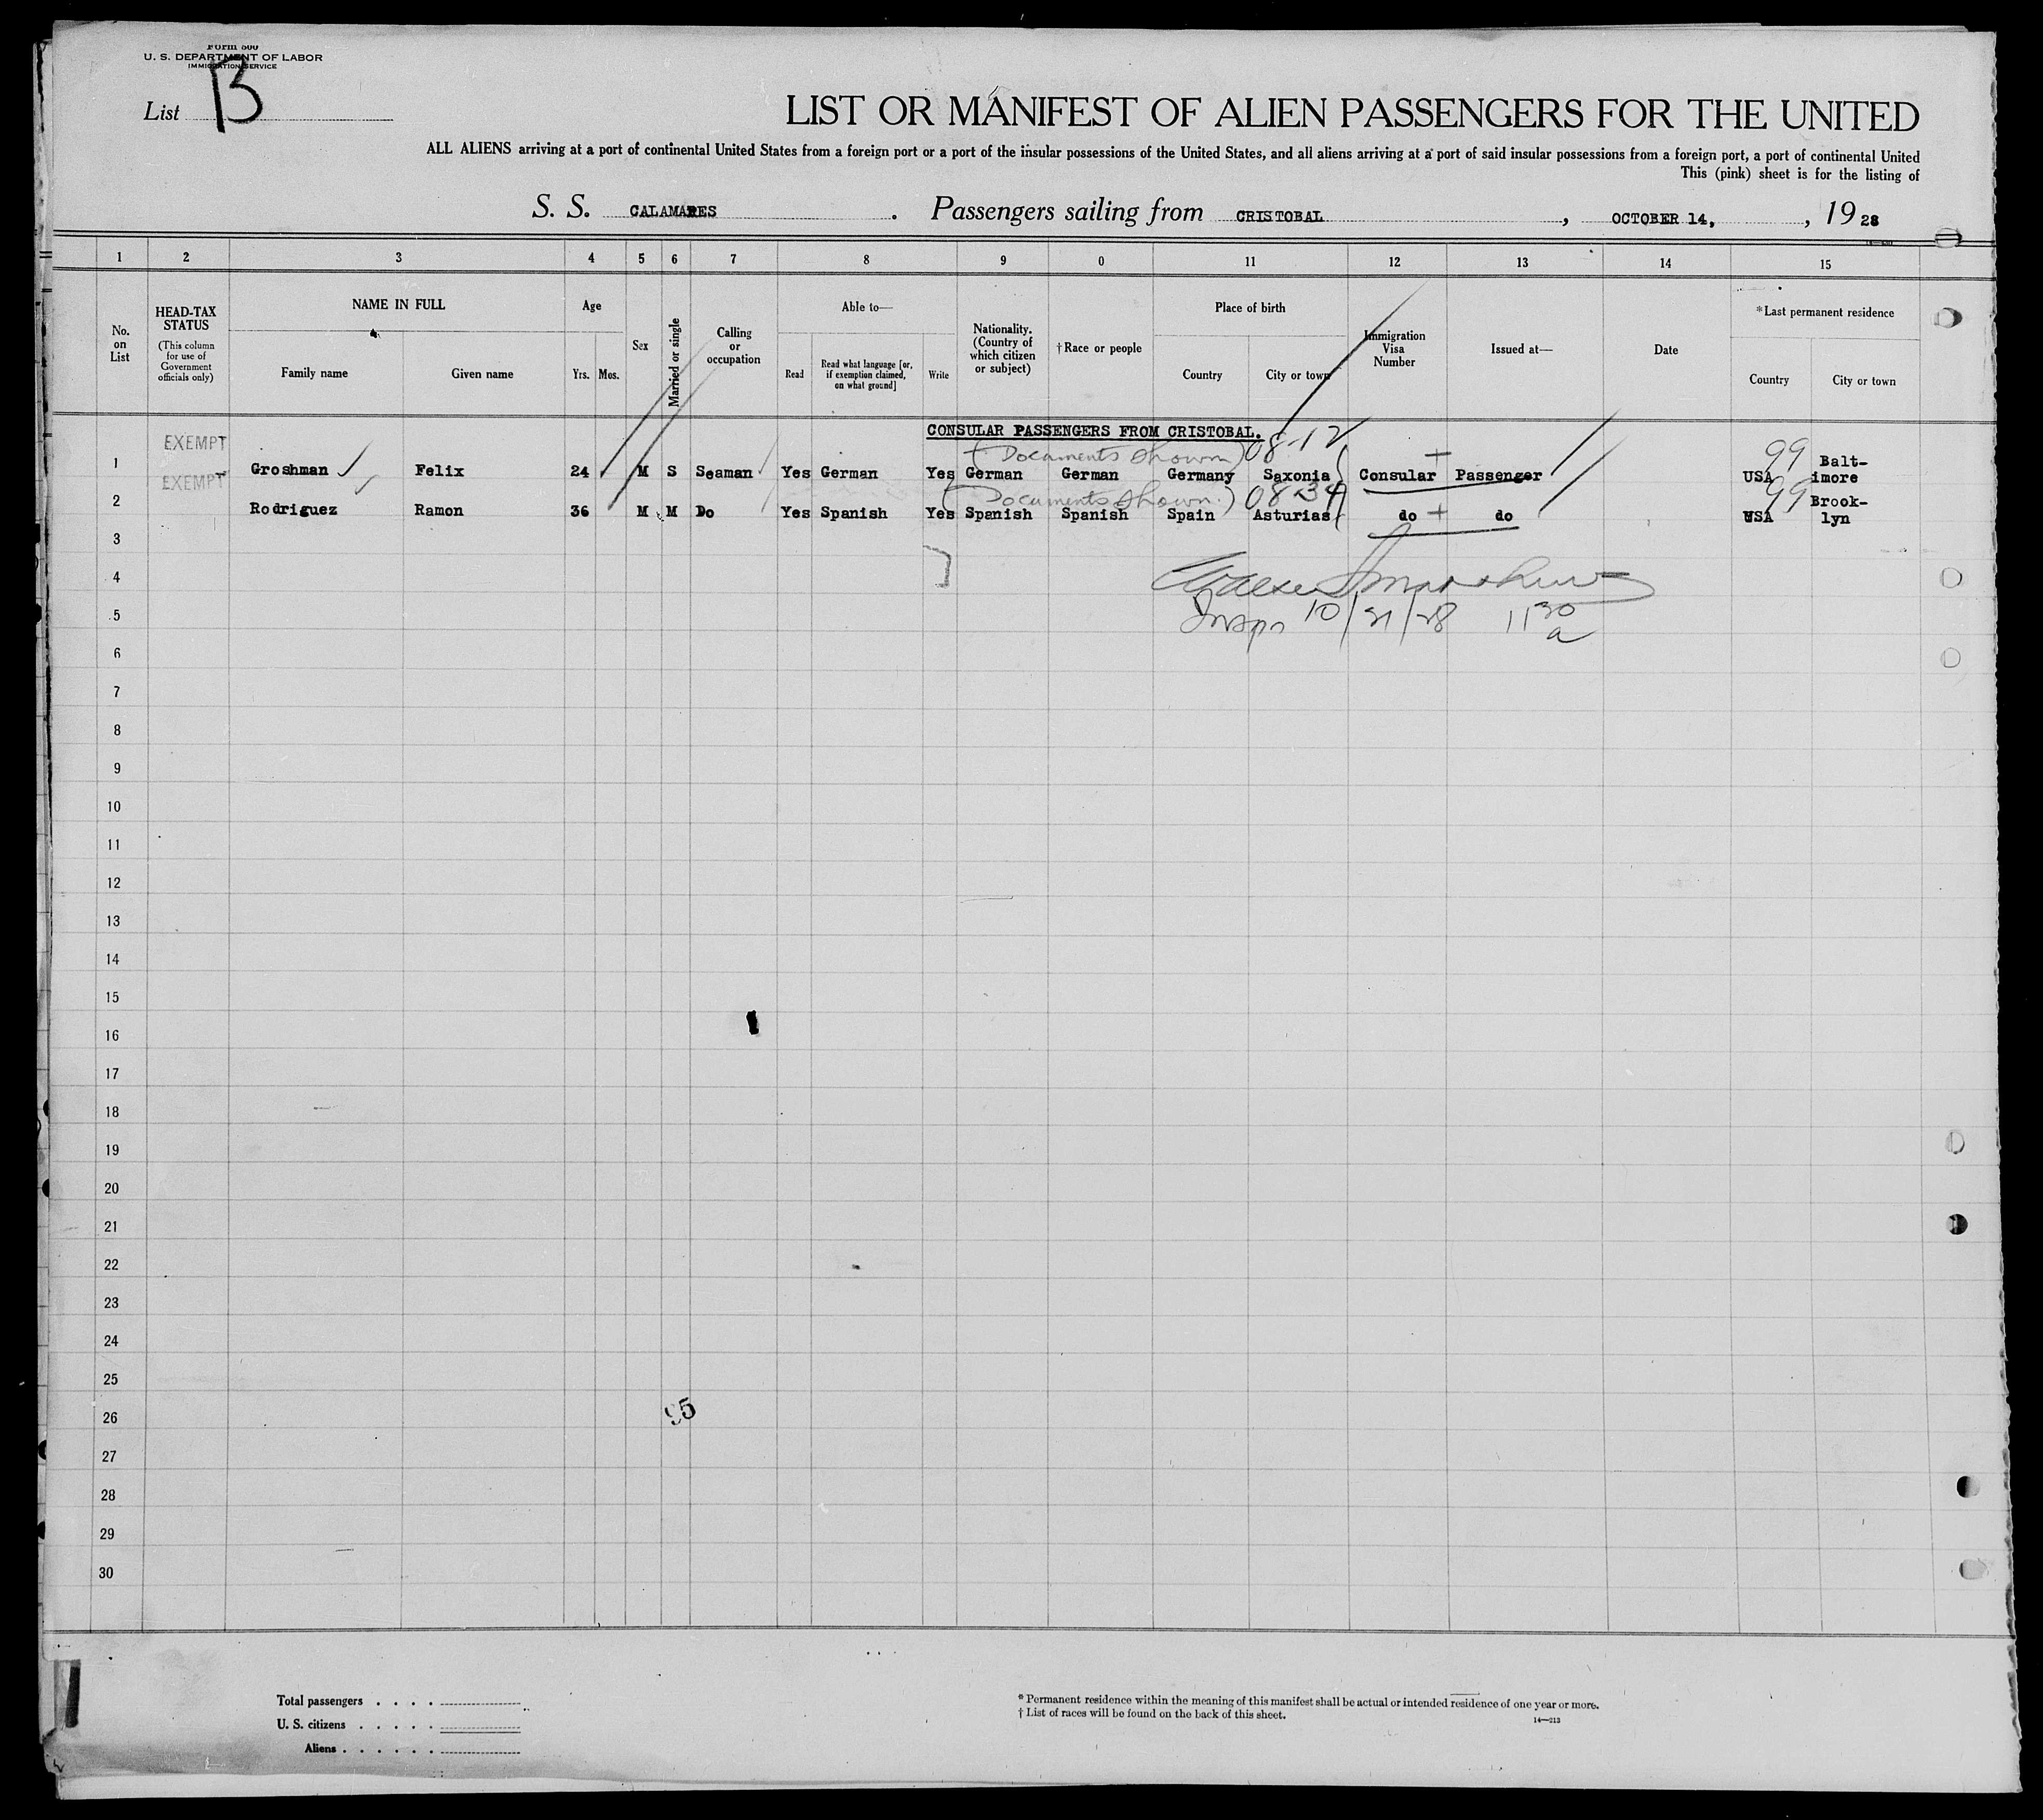 Form 500
U. S. DEPARTMENT OF LABOR
IMMIGRATION SERVICE
List B
LIST OR MANIFEST OF ALIEN PASSENGERS FOR THE UNITED
ALL ALIENS arriving at a port of continental United States from a foreign port or a port of the insular possessions of the United States, and all aliens arriving at a port of said insular possessions from a foreign port, a port of continental United
This (pink) sheet is for the listing of
S. S. CALAMARES. Passengers sailing from CRISTOBAL, OCTOBER 14, , 1928
1 2 3 4 5 6 7 8 9 0 11 12 13 14 15
No. on List
HEAD-TAX STATUS
(This column for use of Government officials only)
NAME IN FULL
Family name Given name
Age
Yrs. Mos.
Sex
Married or single
Calling or occupation
Able to—
Read
Read what language [or, if exemption claimed, on what ground]
Write
Nationality. (Country of which citizen or subject)
† Race or people
Place of birth
Country City or town
Immigration Visa Number
Issued at—
Date
*Last permanent residence
Country City or town
CONSULAR PASSENGERS FROM CRISTOBAL.
EXEMPT (Documents shown) 08-12 99 Balt-
1 Groshman Felix 24 M S Seaman Yes German Yes German German Germany Saxonia Consular Passenger USA imore
EXEMPT (Documents shown.) 08-34 99 Brook-
2 Rodriguez Ramon 36 M M Do Yes Spanish Yes Spanish Spanish Spain Asturias do do USA lyn
3
4
5 Inspr 10/21/28 11 30 a
6
7
8
9
10
11
12
13
14
15
16
17
18
19
20
21
22
23
24
25
26 95
27
28
29
30
Total passengers . . . .
U. S. citizens . . . . .
Aliens . . . . . .
* Permanent residence within the meaning of this manifest shall be actual or intended residence of one year or more.
† List of races will be found on the back of this sheet.
14—213